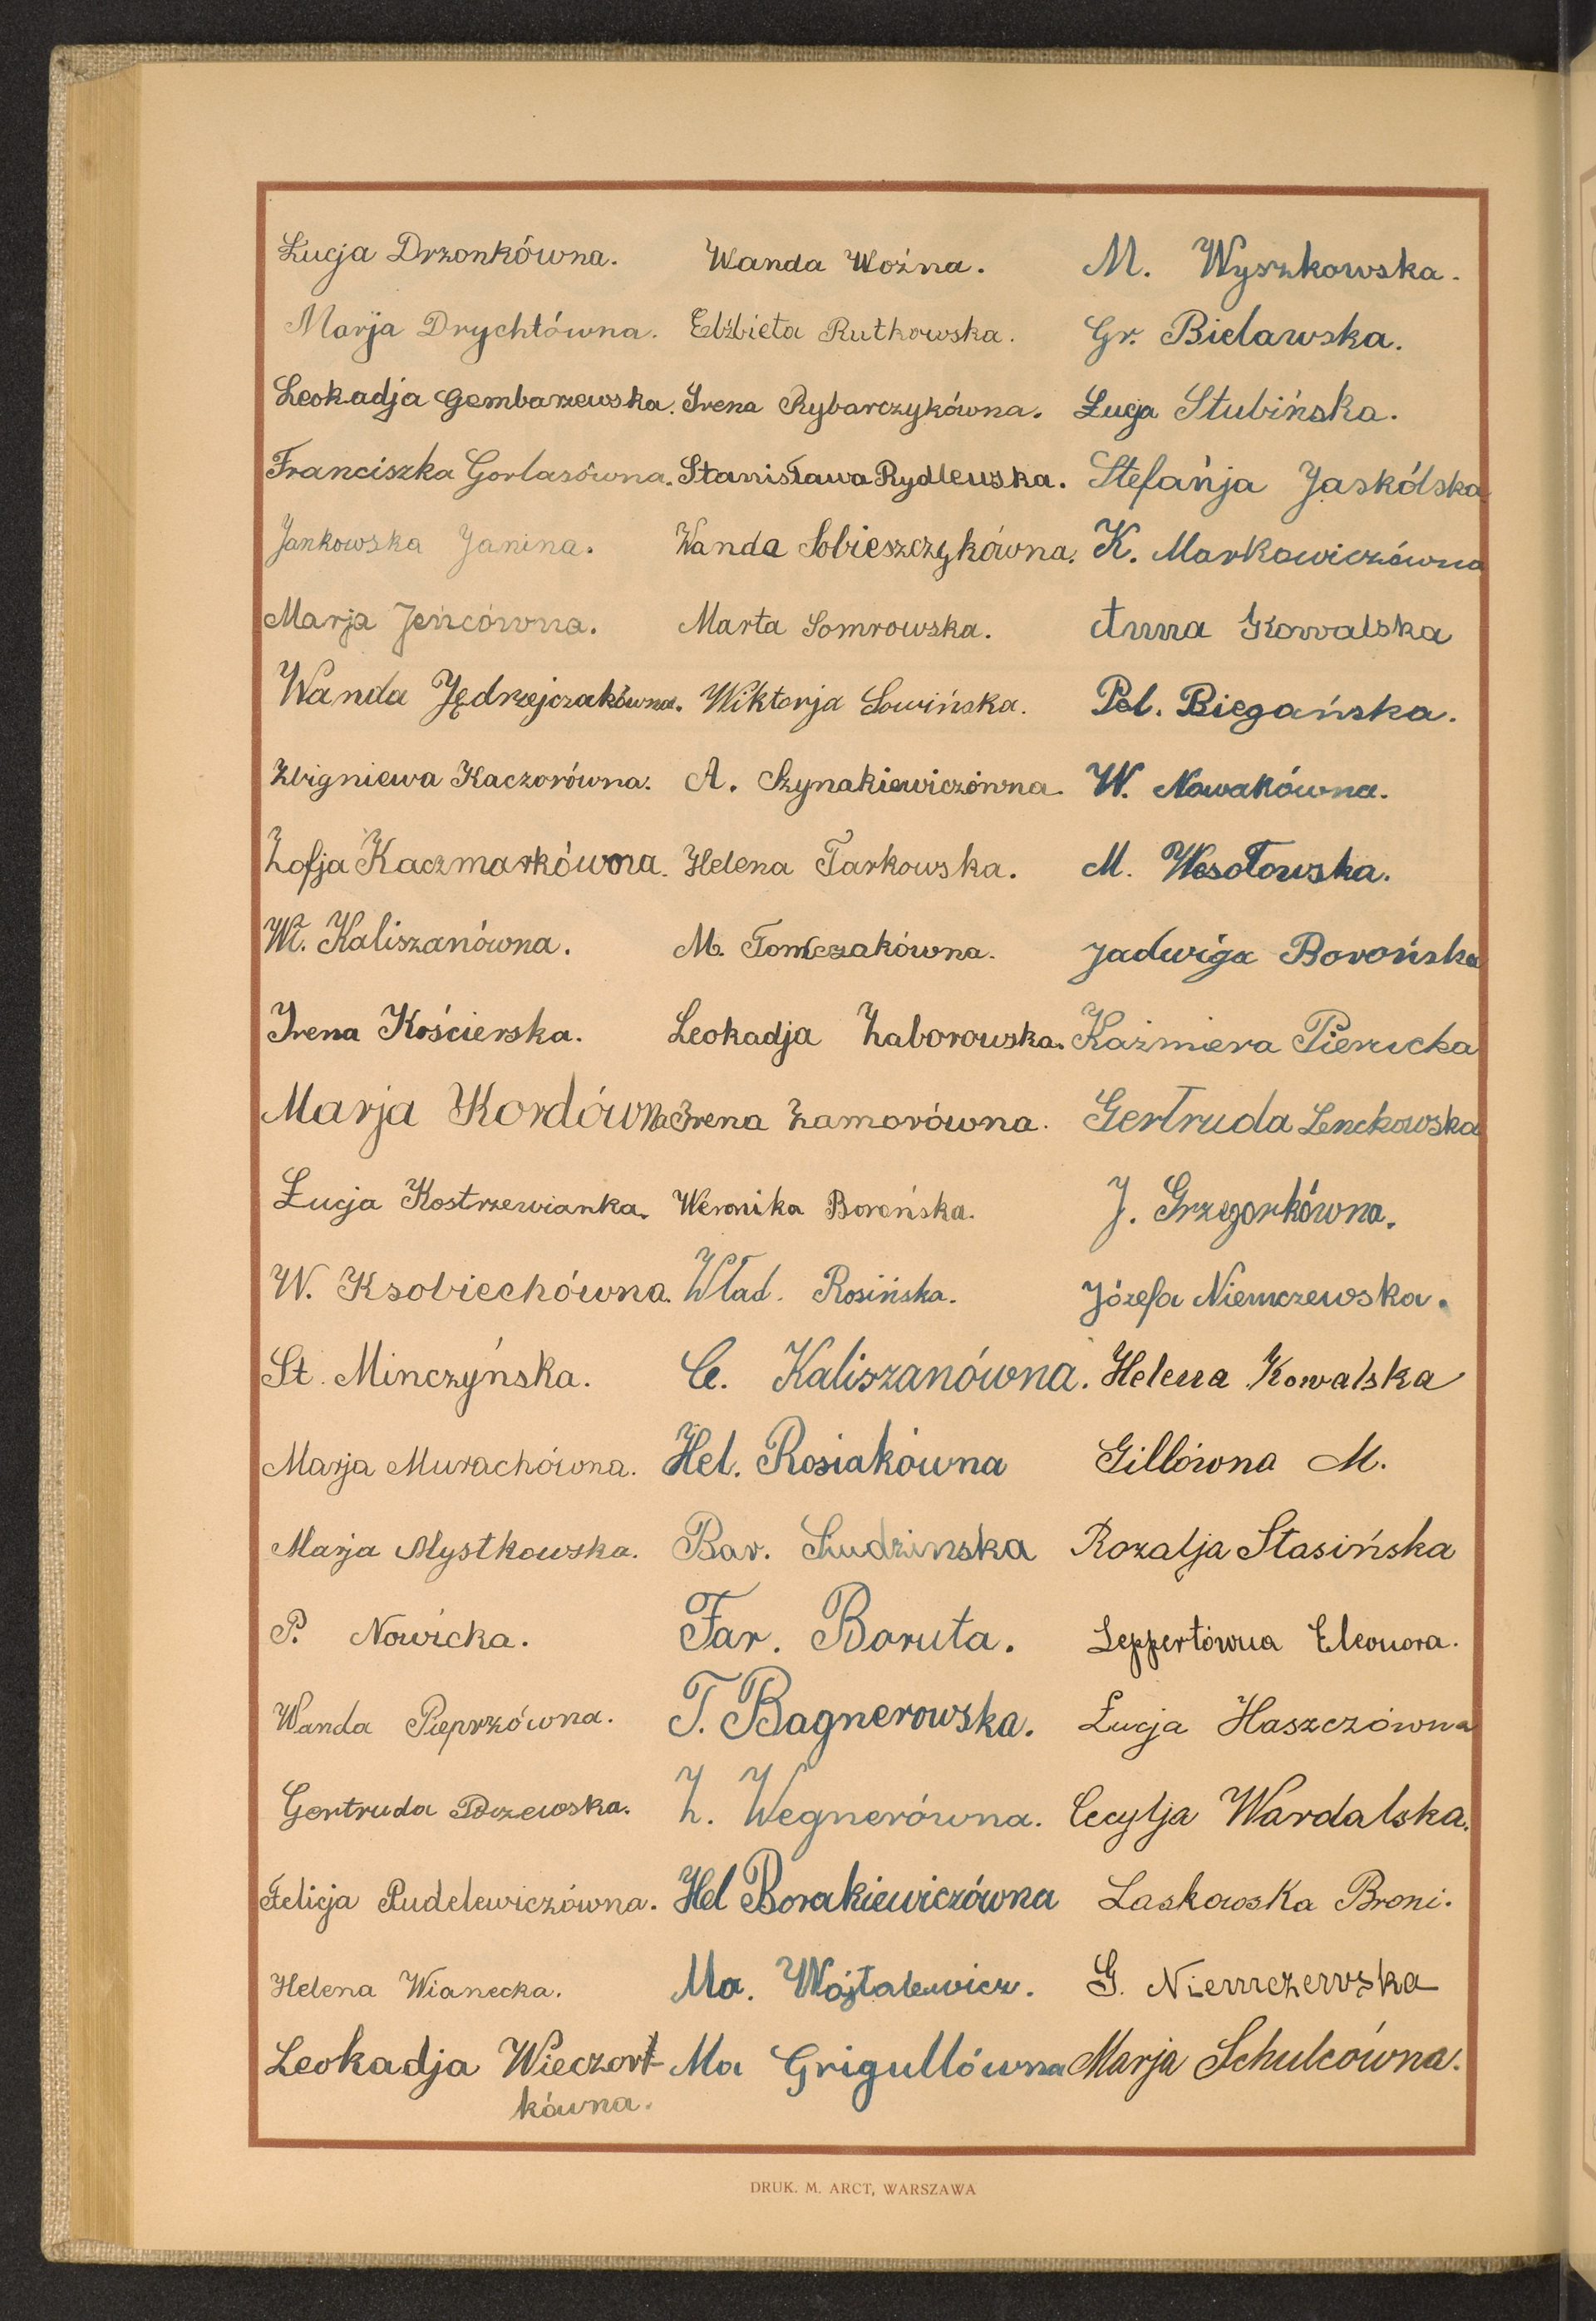 Łucja Drzonkówna.
Marja Drychtówna.
Leokadja Gembarzewska.
Franciszka Gorlasówna.
Jankowska Janina.
Marja Jeńcówna.
Wanda Jędrzejczakówna.
Zbigniewa Kaczorówna.
Zofja Kaczmarkówna.
Wł. Kaliszanówna.
Irena Kościerska.
Marja Kordówna
Łucja Kostrzewianka.
W. Ksobiechówna.
St. Minczyńska.
Marja Murachówna.
Marja Mystkowska.
P. Nowicka.
Wanda Pieprzówna.
Gertruda
Felicja Pudelewiczówna.
Helena Wianecka.
Leokadja Wieczor
kówna.
Wanda Woźna.
Elżbieta Rutkowska.
Irena Rybarczykówna.
Stanisława Rydlewska.
Wanda Sobieszczykówna.
Marta Somrowska.
Wiktorja Sowińska.
A. Szynakiewiczówna.
Helena Tarkowska.
M. Tomczakówna.
Leokadja Zaborowska.
Irena Zamorówna.
Weronika Borońska.
Wład. Rosińska.
C. Kaliszanówna.
Hel. Rosiakówna
Bar. Siudzinska
Far. Boruta.
T. Bagnerowska.
Z. Wegnerówna.
Hel Borakiewiczówna
Ma. Wojtalewicz.
Ma Grigullówna
M. Wyszkowska.
Gr. Bielawska.
Łucja Stubińska.
Stefańja Jaskólska
K. Markowiczówna
Anna Kowalska
Pel. Biegańska.
W. Nowakówna.
M. Wesołowska.
Jadwiga Borońska
Kaźmiera Pienicka
Gertruda Lenckowska
J. Grzegorkówna.
Józefa Niemczewska.
Helena Kowalska
Gillówna M.
Rozalja Stasińska
Leppertówna Eleonora.
Łucja Haszczówna
Cecylja Wardalska.
Laskowska Broni.
G. Niemczewska
Marja Schulcówna.
DRUK. M. ARCT, WARSZAWA